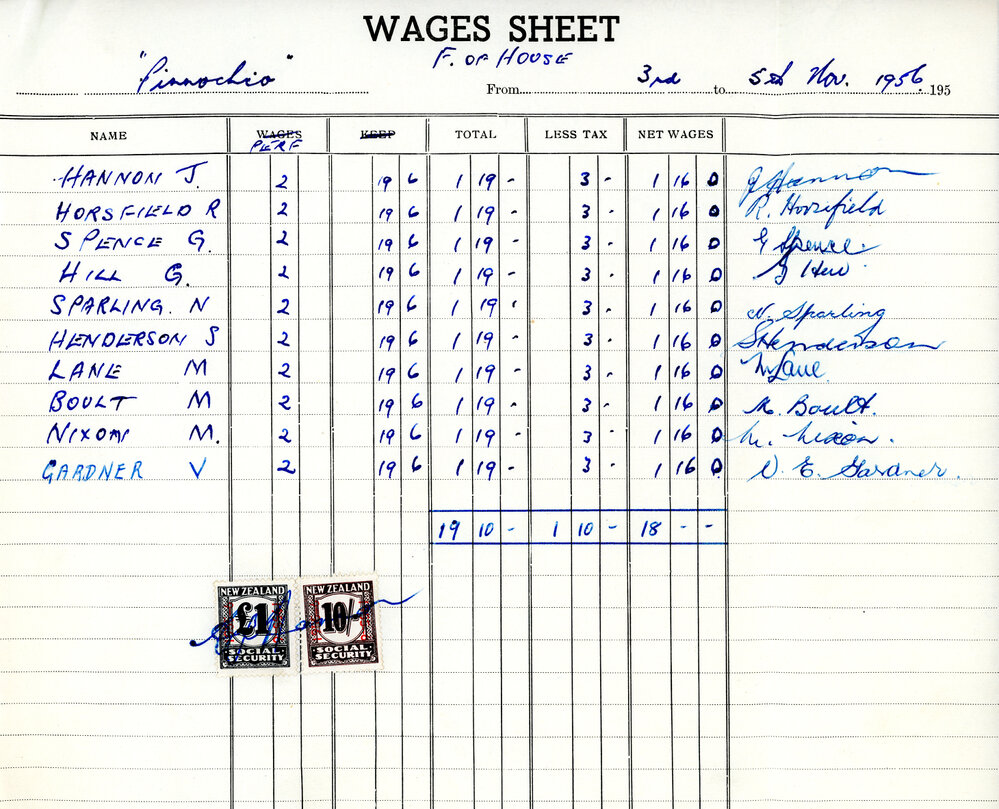 WAGES SHEET
F. OF HOUSE
"Pinnochio" From 3rd to 5th Nov. 1956. 195
NAME WAGES KEEP TOTAL LESS TAX NET WAGES
PERF
HANNON J. 2 19 6 1 19 - 3 - 1 16 0 J Hannon
HORSFIELD R 2 19 6 1 19 - 3 - 1 16 0 R. Horsfield
SPENCE G. 2 19 6 1 19 - 3 - 1 16 0 G Spence.
HILL G. 2 19 6 1 19 - 3 - 1 16 0 G Hill
SPARLING. N 2 19 6 1 19 - 3 - 1 16 0 N. Sparling
HENDERSON S 2 19 6 1 19 - 3 - 1 16 0 S Henderson
LANE M 2 19 6 1 19 - 3 - 1 16 0 M Lane
BOULT M 2 19 6 1 19 - 3 - 1 16 0 M. Boult.
NIXON M. 2 19 6 1 19 - 3 - 1 16 0 M. Nixon.
GARDNER V 2 19 6 1 19 - 3 - 1 16 0 V. E. Gardner.
19 10 - 1 10 - 18 - -
NEW ZEALAND NEW ZEALAND
£1 10/-
SOCIAL SECURITY SOCIAL SECURITY